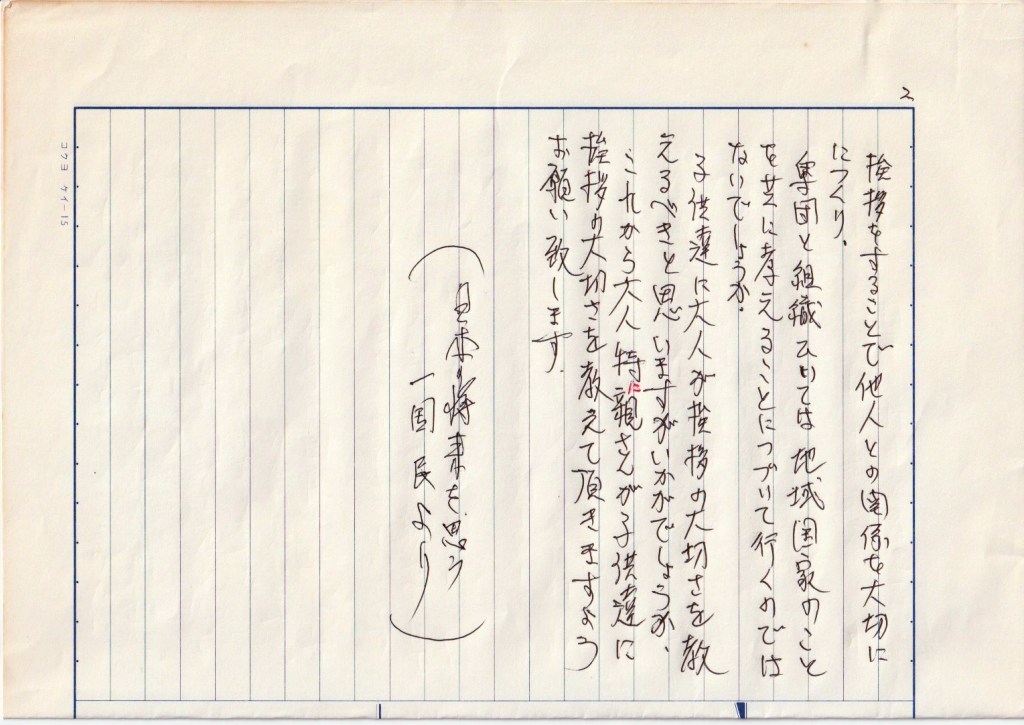 2
挨拶をすることで他人との関係を大切に
につくり.
集団と組織ひいては地域国家のこと
を共に考えることにつづいて行くのでは
ないでしょうか.
子供達に大人が挨拶の大切さを教
えるべきと思いますがいかがでしょうか、
これから大人特に親さんが子供達に
挨拶の大切さを教えて頂きますよう
お願い致します.
(日本の将来を思う
一国民より)
コクヨ ケイ-15